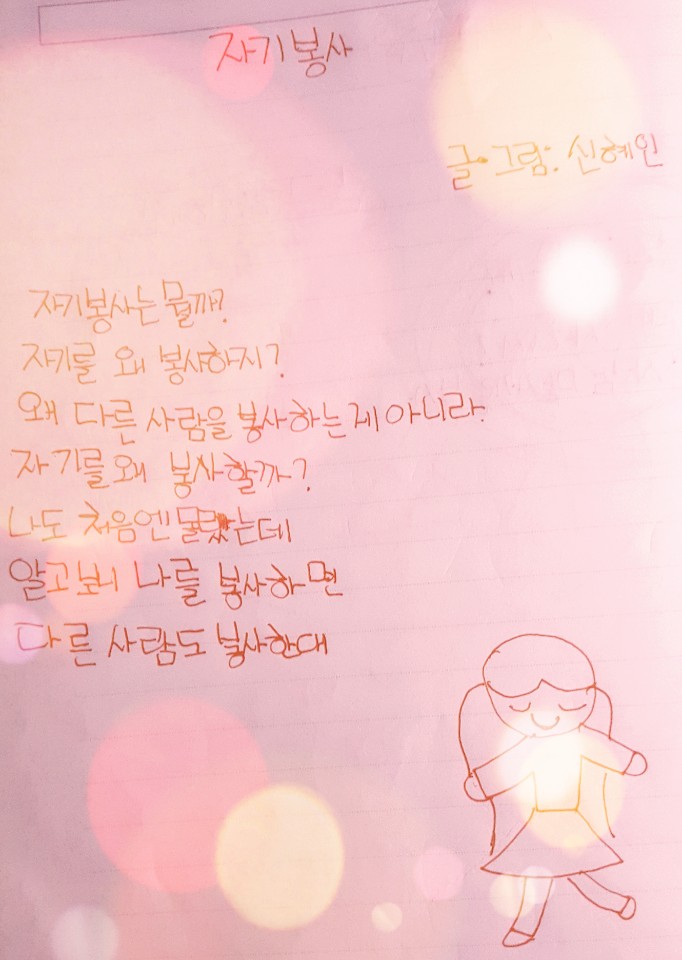 자기봉사
글·그림: 신혜인
자기봉사는 뭘까?
자기를 왜 봉사하지?
왜 다른 사람을 봉사하는게 아니라
자기를 왜 봉사할까?
나도 처음엔 몰랐는데
알고보니 나를 봉사하면
다른 사람도 봉사한대